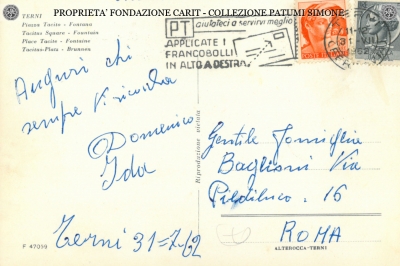 PROPRIETA' FONDAZIONE CARIT - COLLEZIONE PATUMI SIMONE
TERNI
Piazza Tacito - Fontana
Tacitus Square - Fountain
Place Tacite - Fontaine
Tacitus-Platz - Brunnen
PT aiutateci a servirvi meglio
APPLICATE I
FRANCOBOLLI
IN ALTO A DESTRA
Auguri chi
sempre Vi ricorda
Domenico
Ida
Terni 31=7=62
Riproduzione vietata
Gentile Famiglia
Baglioni Via
Piediluco, 16
ROMA
F 47099
ALTEROCCA-TERNI